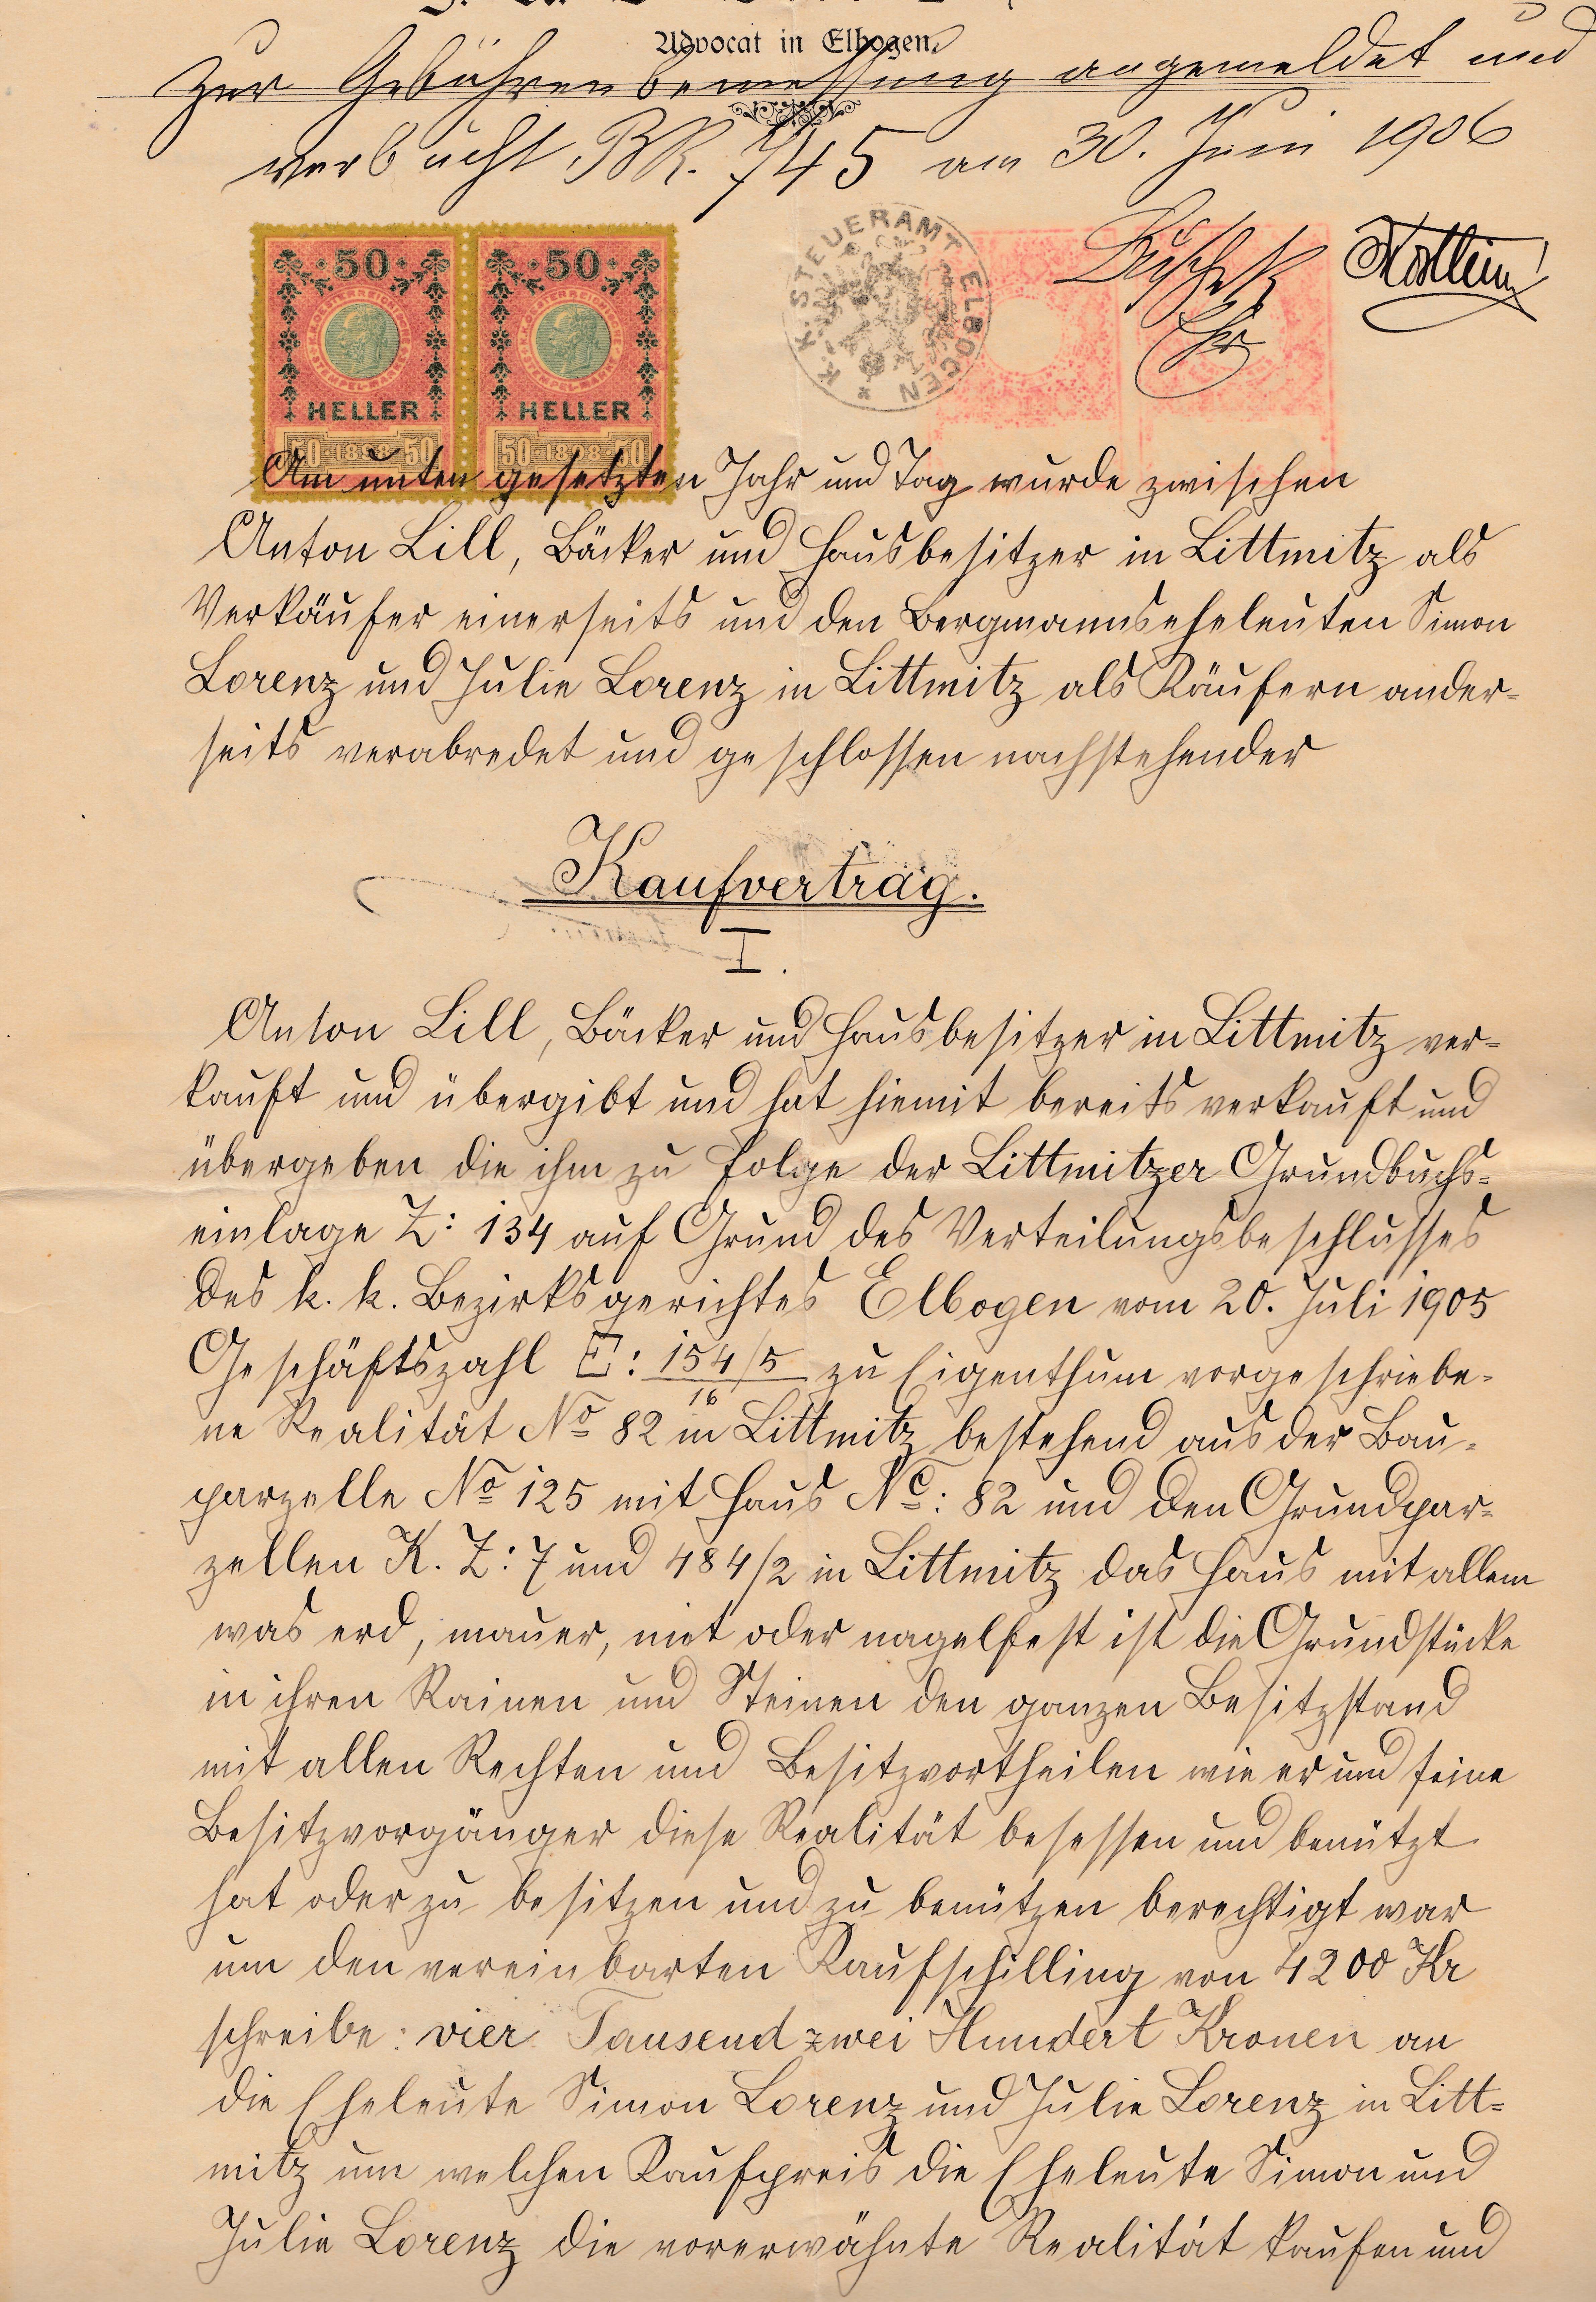 Advocat in Elbogen.
Zur Gebührenbemessung angemeldet und
verbucht BR. 745 am 30. Juni 1906
50 50
K.K. STEUERAMT ELBOGEN
HELLER HELLER
50 1898 50 50 1898 50
Am unten gesetzten Jahr und Tag wurde zwischen
Anton Lill, Bäcker und Hausbesitzer in Littmitz als
Verkäufer einerseits und den Bergmannseheleuten Simon
Lorenz und Julie Lorenz in Littmitz als Käufern ander-
seits verabredet und geschlossen nachstehender
Kaufvertrag.
I.
Anton Lill, Bäcker und Hausbesitzer in Littmitz ver-
kauft und übergibt und hat hiemit bereits verkauft und
übergeben die ihm zu Folge der Littmitzer Grundbuchs-
einlage Z: 134 auf Grund des Verteilungsbeschlusses
des k. k. Bezirksgerichtes Elbogen vom 20. Juli 1905
Geschäftszahl E: 154/5 zu Eigenthum vorgeschriebe-
16
ne Realität No 82 in Littmitz bestehend aus der Bau-
parzelle No 125 mit Haus Nc: 82 und den Grundpar-
zellen K. Z: 7 und 484/2 in Littmitz das Haus mit allem
was erd, mauer, niet oder nagelfest ist die Grundstücke
in ihren Rainen und Steinen den ganzen Besitzstand
mit allen Rechten und Besitzvortheilen wie er und seine
Besitzvorgänger diese Realität besessen und benützt
hat oder zu besitzen und zu benützen berechtigt war
um den vereinbarten Kaufschilling von 4200 Kr
schreibe: vier Tausend zwei Hundert Kronen an
die Eheleute Simon Lorenz und Julie Lorenz in Litt-
mitz um welchen Kaufpreis die Eheleute Simon und
Julie Lorenz die vorerwähnte Realität kaufen und